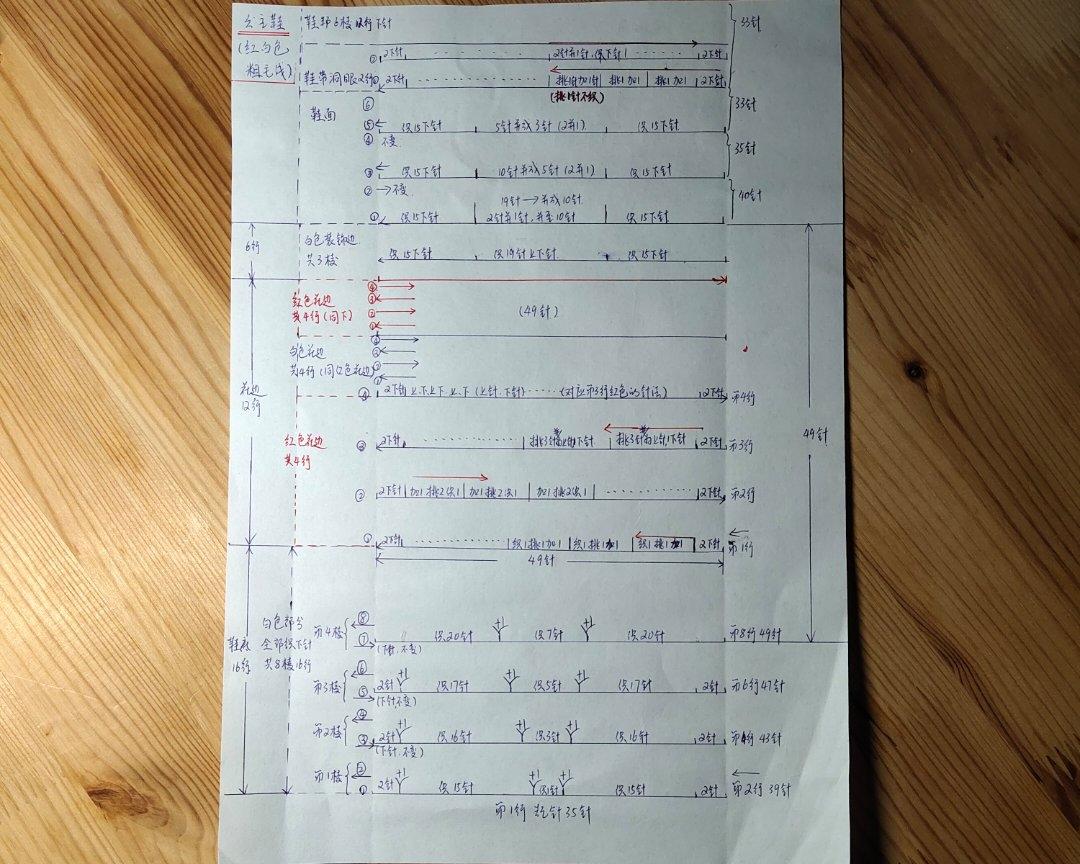 公主鞋
(红白色
粗毛线)
鞋邦6棱 12行下针
33针
② 2下针 ········ 2针并1针,织下针 2下针
鞋带洞眼2行① 2下针 ········ 挑1加1针 挑1加1 挑1加1 2下针
(挑1针不织)
鞋面
⑥
33针
⑤ 织15下针 5针并成3针(2并1) 织15下针
④ 不变
35针
③ 织15下针 10针并成5针(2并1) 织15下针
② 不变
40针
19针→并成10针
① 织15下针 2针并1针,并至10针 织15下针
6行
白色装饰边
共3棱
织15下针 织19针上下针 织15下针
红色花边
共4行(同下)
④
③
②
①
(49针)
白色花边
共4行(同红色花边)
④
③
②
①
花边
12行
④ 2下针 上.下.上下.上.下(上针.下针)······(对应第3行红色的针法) 2下针 第4行
红色花边
共4行
③ 2下针 ········ 2下针 第3行
② 2下针 加1挑2织1 加1挑2织1 加1挑2织1 ········ 2下针 第2行
① 2下针 ········ 织1挑1加1 织1挑1加1 织1挑1加1 2下针 第1行
49针
49针
鞋底
16行
白色部分
全部织下针
共8棱16行
第4棱 ⑧ ⑦ 织20针 +1 织7针 +1 织20针 第8行49针
(下针.不变)
第3棱 ⑥ ⑤ 2针 +1 织17针 +1 织5针 +1 织17针 2针 第6行47针
(下针.不变)
第2棱 ④ ③ 2针 +1 织16针 +1 织3针 +1 织16针 2针 第4行43针
(下针.不变)
第1棱 ② ① 2针 +1 织15针 +1 织1针 +1 织15针 2针 第2行39针
第1行 起针35针